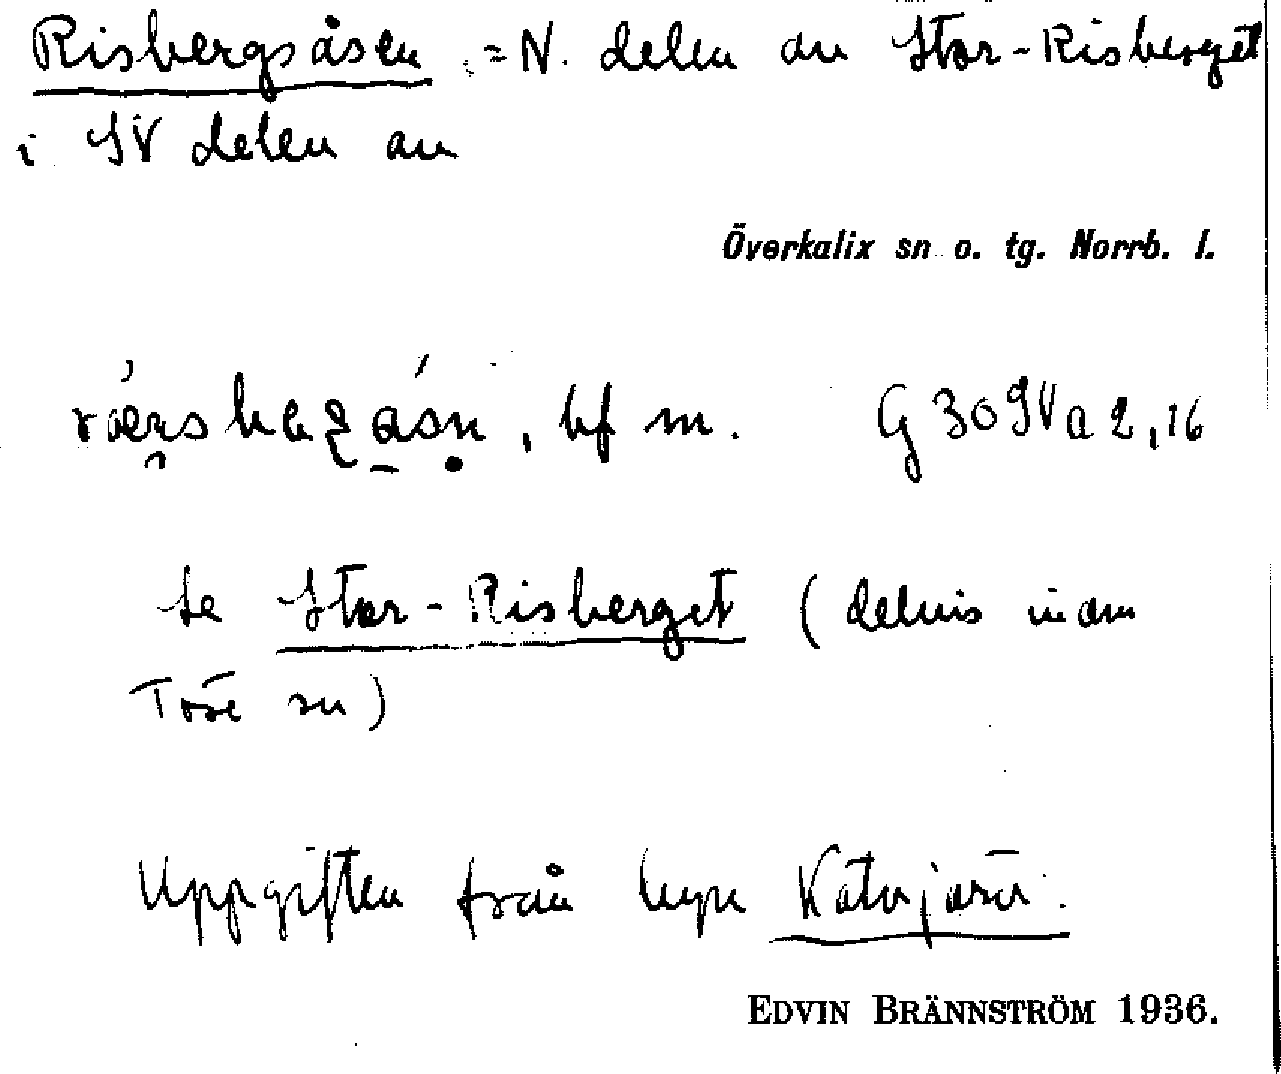 Risbergsåsen = N. delen av Stor-Risberget
i SV delen av
Överkalix sn o. tg. Norrb. l.
bf m. G 30 SV a 2,16
se Stor-Risberget (delvis inom
Töre sn)
Uppgiften från byn
EDVIN BRÄNNSTRÖM 1936.